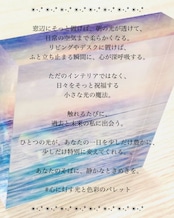 窓辺にそっと置けば、朝の光が透けて、
日常の空気まで柔らかくなる。
リビングやデスクに置けば、
ふと立ち止まる瞬間に、心が深呼吸する。
ただのインテリアではなく、
日々をそっと祝福する
小さな光の魔法。
触れるたびに、
過去と未来の私に出会う。
ひとつの光が、あなたの一日を少しだけ豊かに、
少しだけ特別に変えてくれる。
あなたのそばに、静かなときめきを。
#心に灯す光と色彩のパレット